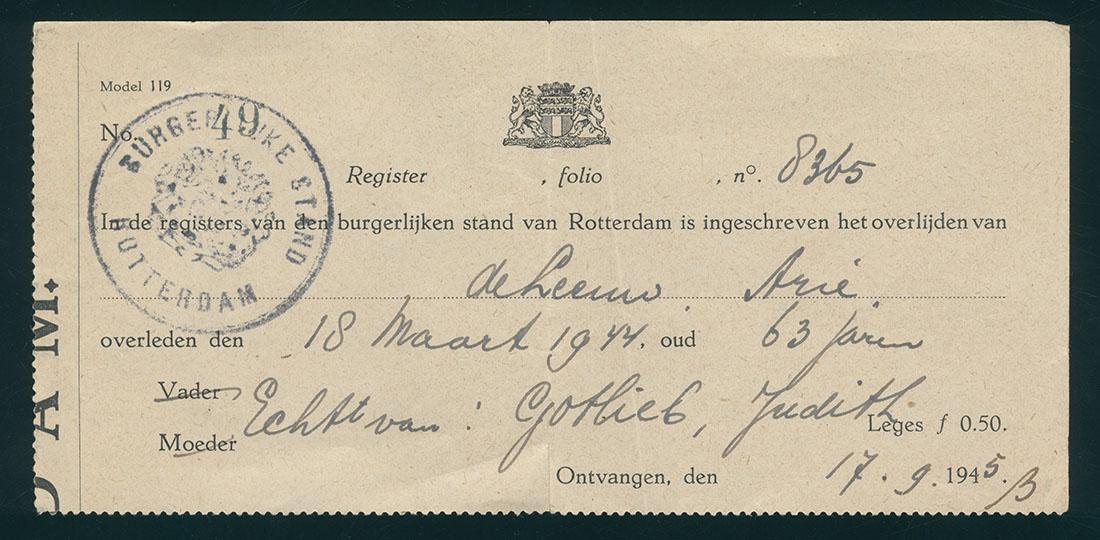 Model 119
No. 49
BURGERLIJKE STAND
ROTTERDAM
Register , folio , n°. 8365
In de registers van den burgerlijken stand van Rotterdam is ingeschreven het overlijden van
de Leeuw. Arie.
overleden den 18 Maart 1944, oud 63 jaren
Vader
Echtt van: Gotlieb, Judith.
Moeder
Leges f 0.50.
Ontvangen, den 17.9.1945.
D A M.